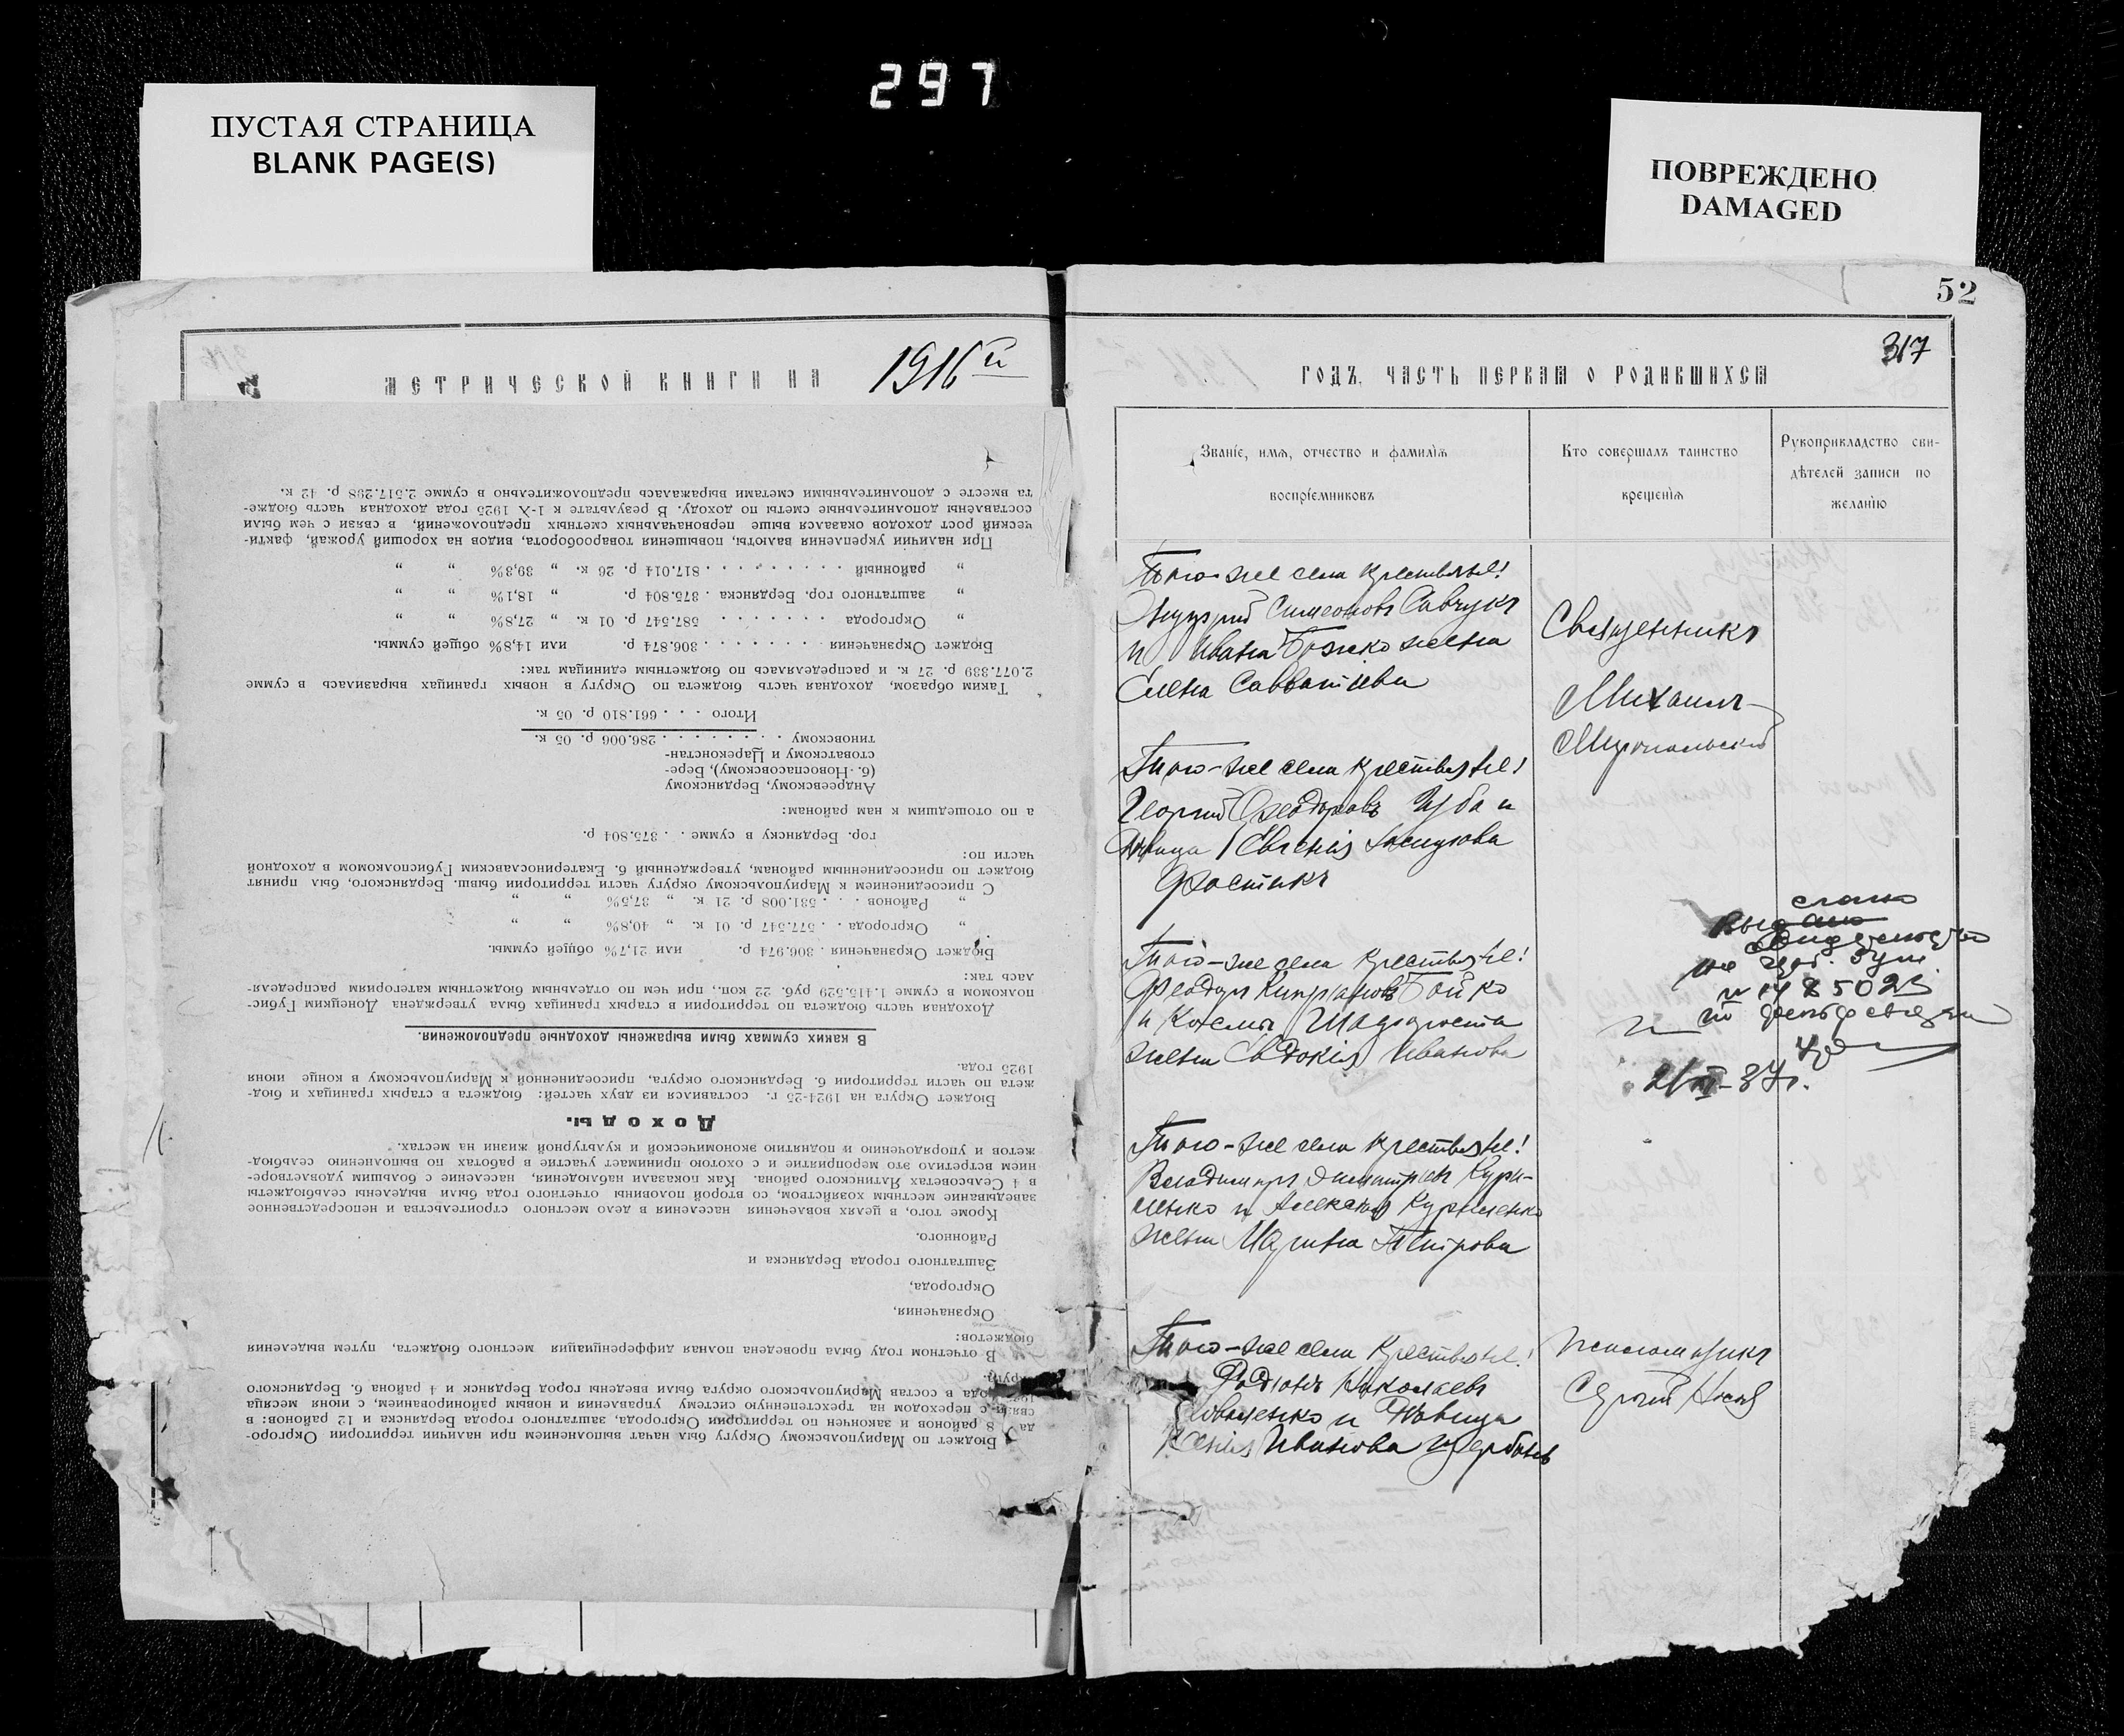 297
ПУСТАЯ СТРАНИЦА
BLANK PAGE(S)
ПОВРЕЖДЕНО
DAMAGED
52
МЕТРИЧЕСКОЙ КНИГИ НА
1916й
Бюджет по Мариупольскому Округу был начат выполнением при наличии территории Окргоро-
да, 8 районов и закончен по территории Окргорода, заштатного города Бердянска и 12 районов: в
связи с переходом на трехстепенную систему управления и новым районированием, с июня месяца
года в состав Мариупольского округа были введены город Бердянск и 4 района б. Бердянского
В отчетном году была проведена полная дифференциация местного бюджета, путем выделения
бюджетов:
Окрзначения,
Окргорода,
Заштатного города Бердянска и
Районного.
Кроме того, в целях вовлечения населения в дело местного строительства и непосредственное
заведывание местным хозяйством, со второй половины отчетного года были выделены сельбюджеты
в 4 Сельсоветах Ялтинского района. Как показали наблюдения, население с большим удовлетворе-
нием встретило это мероприятие и с охотою принимает участие в работах по выполнению сельбюд-
жетов и упорядочению и поднятию экономической и культурной жизни на местах.
Доходы.
Бюджет Округа на 1924-25 г. составился из двух частей: бюджета в старых границах и бюд-
жета по части территории б. Бердянского округа, присоединенной к Мариупольскому в конце июня
1925 года.
В каких суммах были выражены доходные предположения.
Доходная часть бюджета по территории в старых границах была утверждена Донецким Губис-
полкомом в сумме 1.415.529 руб. 22 коп., при чем по отдельным бюджетным категориям распределя-
лась так:
Бюджет Окрзначения . 306.974 р. или 21,7% общей суммы.
" Окргорода . . 577.547 р. 01 к. " 40,8% " "
" Районов . . . 531.008 р. 21 к. " 37,5% " "
С присоединением к Мариупольскому округу части территории бывш. Бердянского, был принят
бюджет по присоединенным районам, утвержденный б. Екатеринославским Губисполкомом в доходной
части по:
гор. Бердянску в сумме . . 375.804 р.
а по отошедшим к нам районам:
Андреевскому, Бердянскому
(б. Новоспасовскому), Бере-
стоватскому и Цареконстан-
тиновскому . . . . . . . . 286.006 р. 05 к.
Итого . . . 661.810 р. 05 к.
Таким образом, доходная часть бюджета по Округу в новых границах выразилась в сумме
2.077.339 р. 27 к. и распределялась по бюджетным единицам так:
Бюджет Окрзначения . . . . . . . 306.874 р. или 14,8% общей суммы.
" Окргорода . . . . . . . 587.547 р. 01 к. " 27,8% " "
" заштатного гор. Бердянска . 375.804 р. " 18,1% " "
" районный . . . . . . . . . 817.014 р. 26 к. " 39,3% " "
При наличии укрепления валюты, повышения товарооборота, видов на хороший урожай, факти-
ческий рост доходов оказался выше первоначальных сметных предположений, в связи с чем были
составлены дополнительные сметы по доходу. В результате к 1-X 1925 года доходная часть бюдже-
та вместе с дополнительными сметами выражалась предположительно в сумме 2.517.298 р. 42 к.
317
ГОДЪ, ЧАСТЬ ПЕРВАЯ О РОДИВШИХСЯ
Званіе, имя, отчество и фамилія
воспріемниковъ
Кто совершалъ таинство
крещенія
Рукоприкладство сви-
дѣтелей записи по
желанію
Того-же села крестьяне:
Симеоновъ Савчукъ
и Ивана Божко жена
Елена Савватіева
Священникъ
Михаилъ
Того-же села крестьяне:
Георгій Ѳеодоровъ и
дѣвица Евгенія
Того-же села крестьяне:
Ѳеодоръ Кипріановъ Бойко
и Козьмы
жена Евдокія Иванова
2/III-37г.
Того-же села крестьяне:
Владимиръ Димитріевъ Кури-
ленко и Алексія Куриленко
жена Марина Петрова
Того-же села крестьяне:
Родіонъ Николаевъ
и дѣвица
Ксенія Иванова Щербань
Псаломщикъ
Сергій